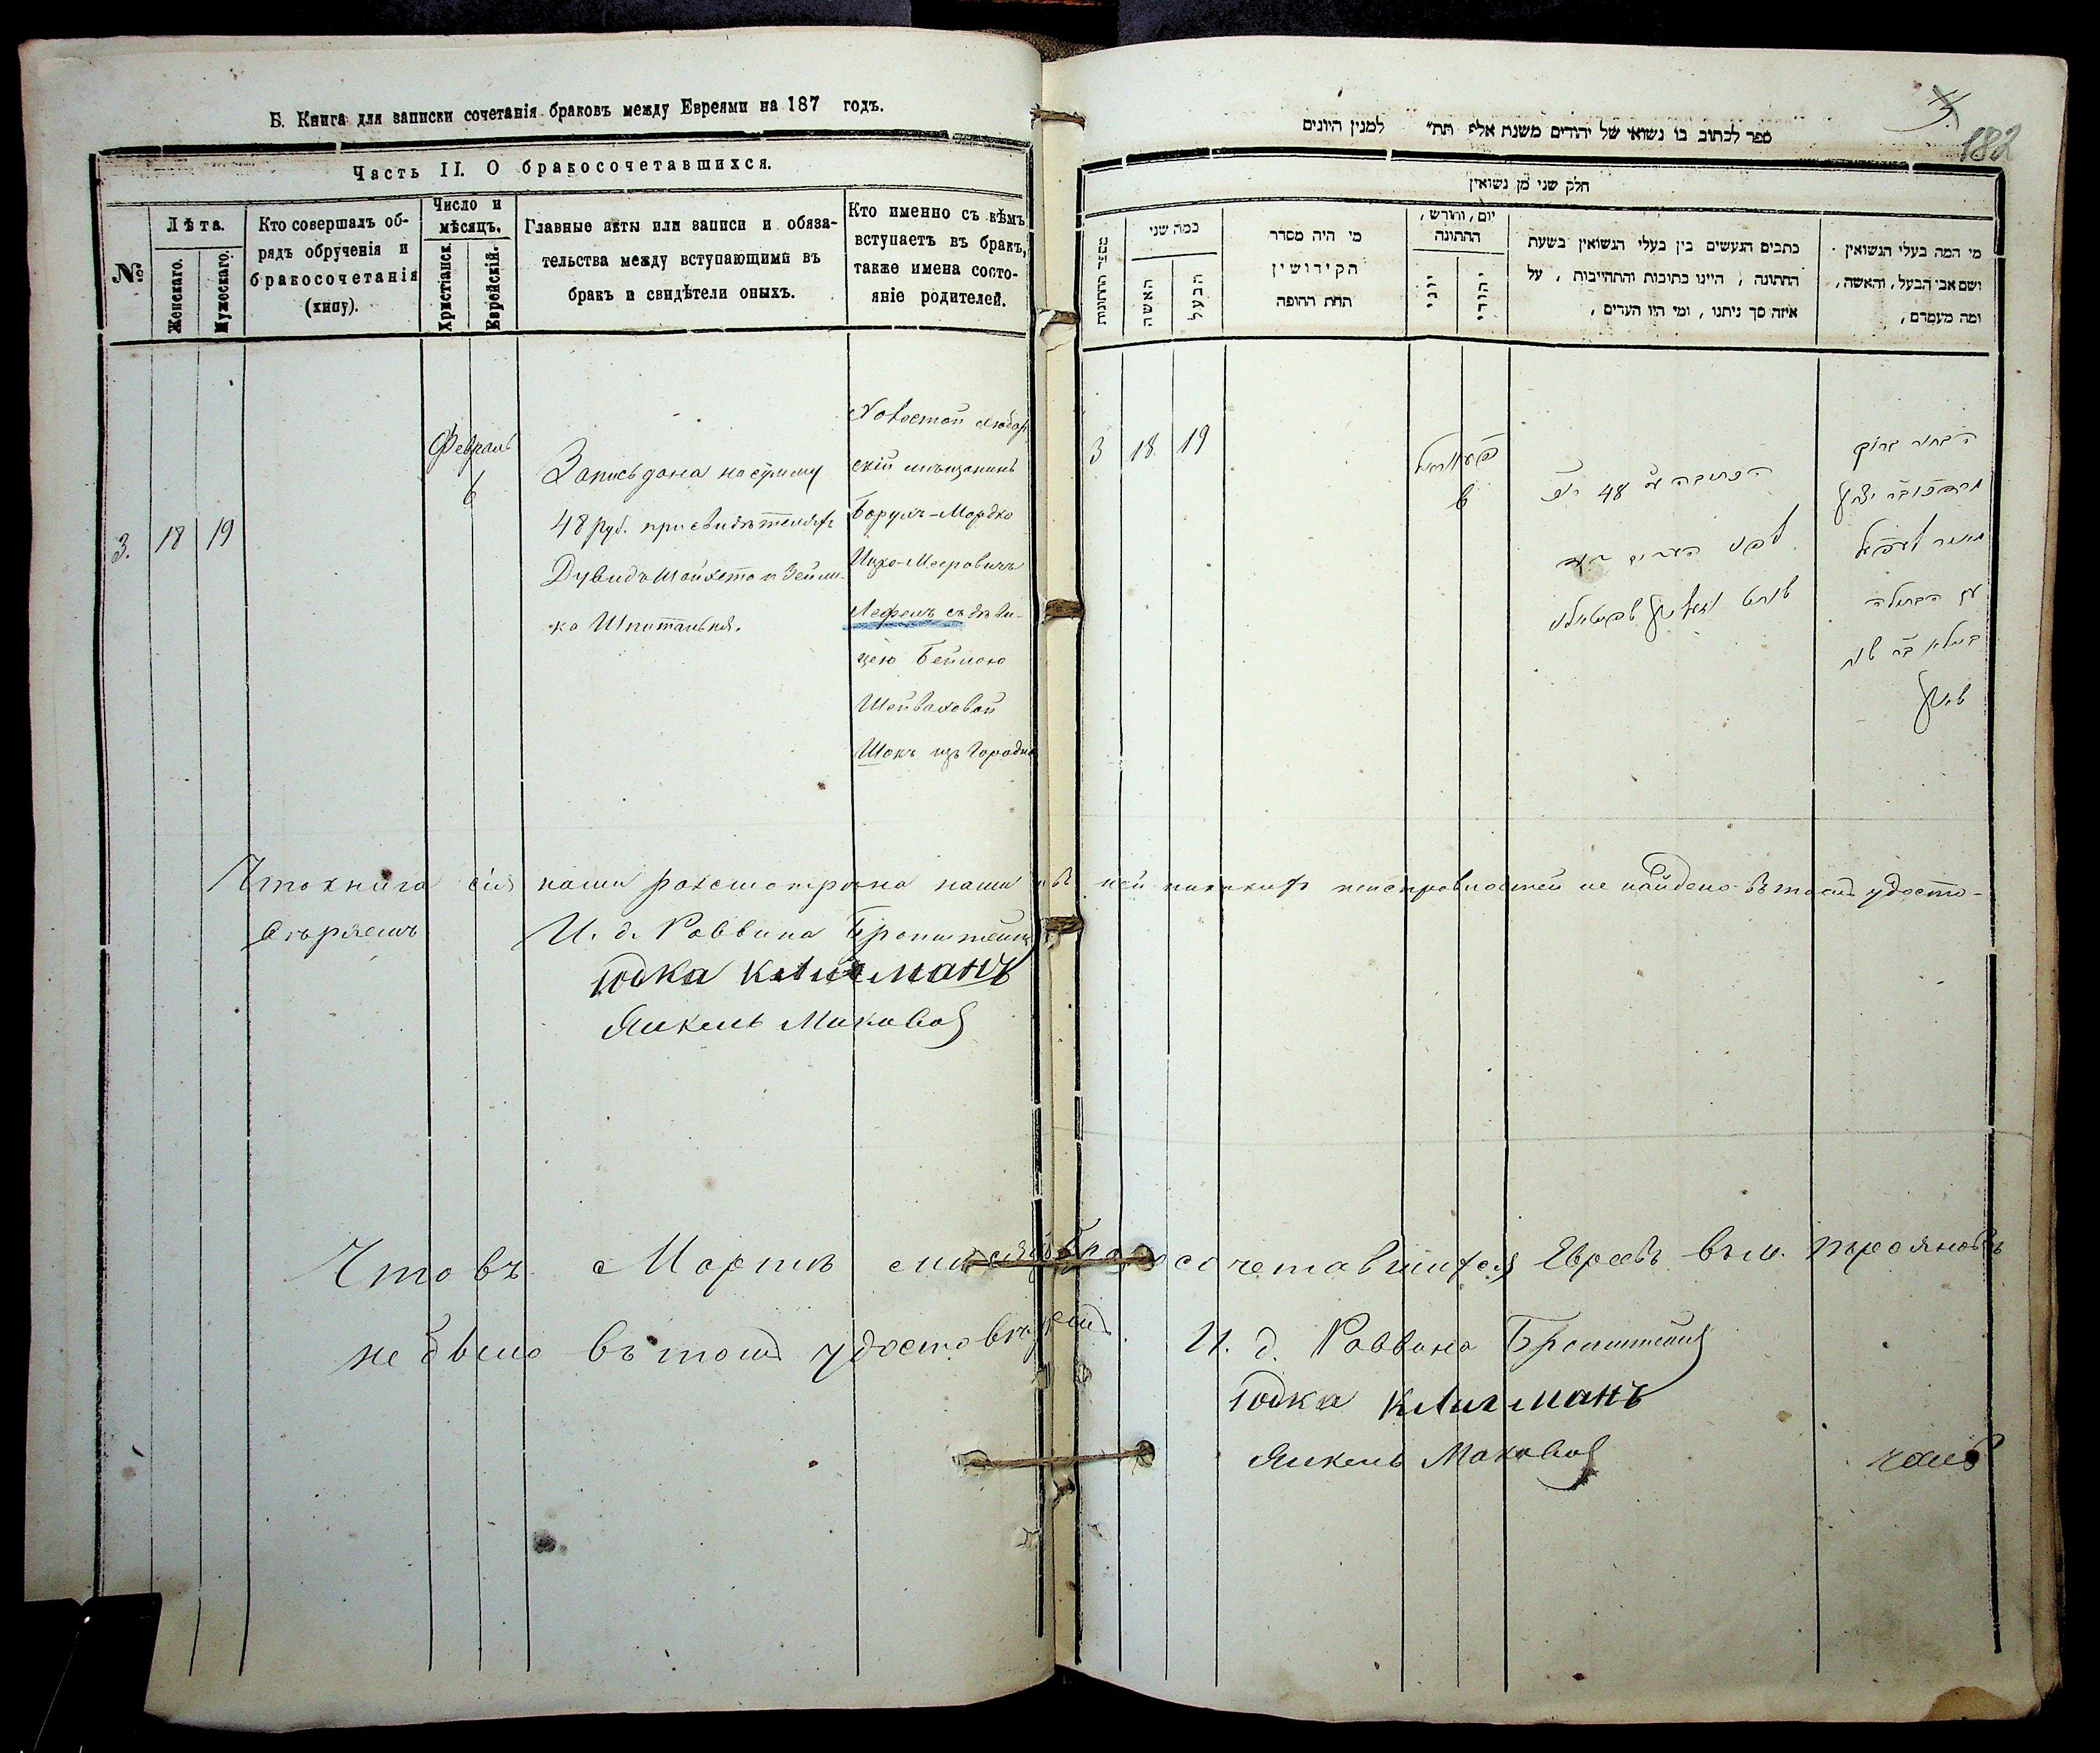 Б. Книга для записки сочетанія браковъ между Евреями на 187 годъ.
Часть II. О бракосочетавшихся.
№
Лѣта.
Женскаго.
Мужескаго.
Кто совершалъ об-
рядъ обрученія и
бракосочетанія
(хипу).
Число и
мѣсяцъ.
Христіанск.
Еврейскій.
Главные акты или записи и обяза-
тельства между вступающими въ
бракъ и свидѣтели оныхъ.
Кто именно съ кѣмъ
вступаетъ въ бракъ,
также имена состо-
яніе родителей.
3.
18
19
Февраль
6
Запись дана на сумму
48 руб. при свидѣтеляхъ
Дувидъ Шойхетъ и Зейли-
ка Шпитальня.
Холостой Любар
скій мѣщанинъ
Борухъ-Мордко
Ицко-Мееровичъ
Лефель съ дѣви-
цею Бейлою
Шейваховой
Шокъ изъ Городка
Что книга сія нами разсмотрѣна нами и въ ней никакихъ неисправностей не найдено въ томъ удосто-
вѣряемъ
И. д. Раввина Бронштейнъ
Юдка Клигманъ
Янкель Маковой
Что въ Мартѣ мѣсяцѣ бракосочетавшихся Евреевъ въ м. Трояновѣ
не было въ томъ удостовѣряемъ
И. д. Раввина Бронштейнъ
Юдка Клигманъ
Янкель Маковой
182
ספר לכתוב בו נשואי של יהודים משנת אלף תת״ למנין היונים
חלק שני מן נשואין
מספר החתונות
כמה שני
האשה
הבעל
מי היה מסדר
הקידושין
תחת החופה
יום, וחורש,
החתונה
יוני
יהודי
כתבים הנעשים בין בעלי הנשואין בשעת
החתונה, היינו כתובות והתחייבות, על
איזה סך ניתנו, ומי היו העדים,
מי המה בעלי הנשואין
ושם אבי הבעל, והאשה,
ומה מעמדם,
3
18
19
6
הכתובה 48